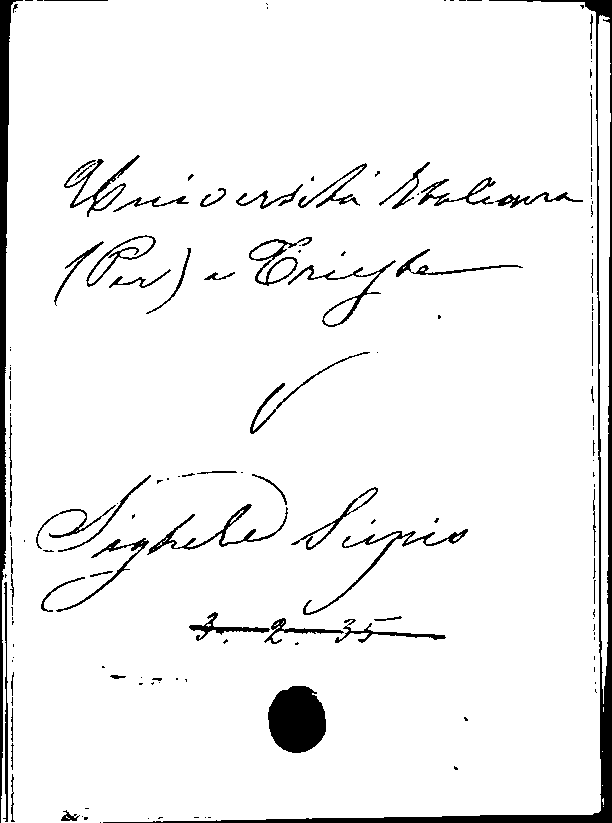 Università Italiana
(Per) a Trieste
V
Sighele Scipio
3. 2. 35